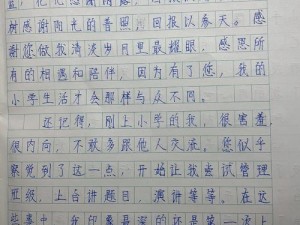 树感谢阳光的普照,回报以参天。感
谢您做我清淡岁月里最耀眼,感恩所
有的相遇和陪伴,因为有了您,我的
小学生活才会那样与众不同。
还记得,刚上小学的我,很害羞,
很内向,不敢多跟他人交流。您似乎
察觉到了这一点,开始让我尝试管理
班级,上台讲题目,演讲等等。在这
我印象最深的还是第一次上